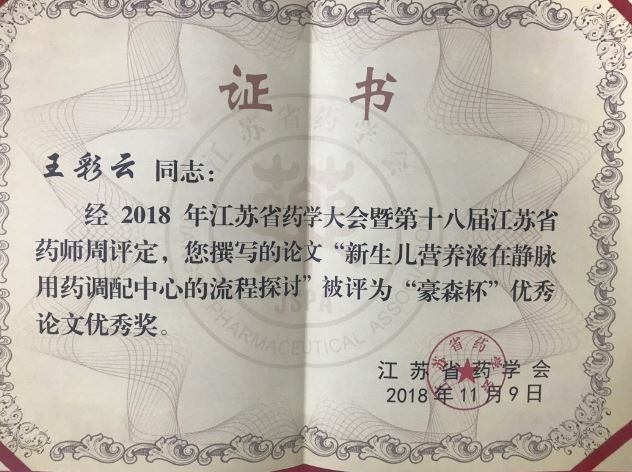 证 书
王彩云 同志：
经 2018 年江苏省药学大会暨第十八届江苏省
药师周评定，您撰写的论文“新生儿营养液在静脉
用药调配中心的流程探讨”被评为“豪森杯”优秀
论文优秀奖。
江苏省药学会
2018 年 11 月 9 日
江苏省药学会
江苏省药学会
JSPA
PHARMACEUTICAL ASSOCIATION